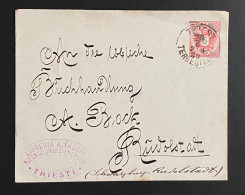 An die löbliche
Buchhandlung
A. Bock
Rudolstadt
(Schwarzburg-Rudolstadt)
TRIESTE